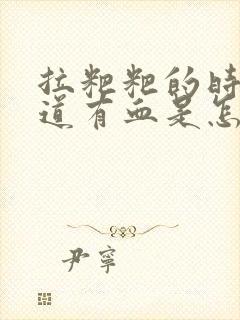 拉粑粑的时
道有血是怎
尹寧